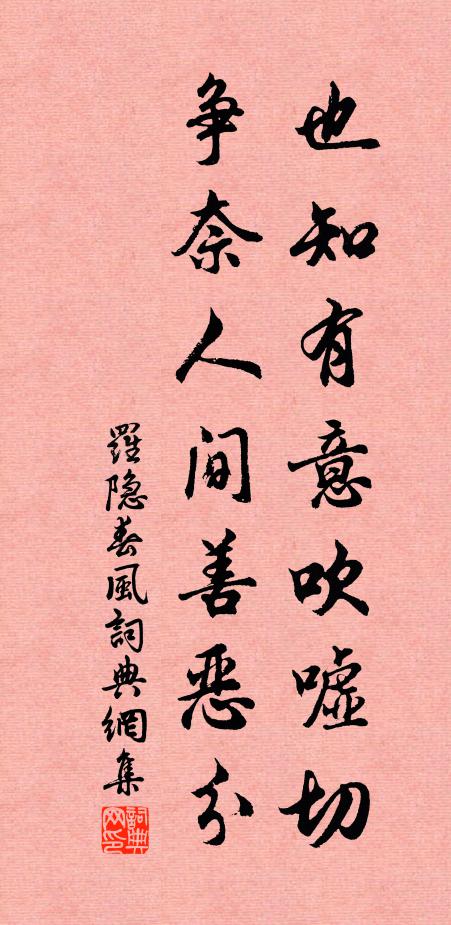 也知有意吹嘘切
争奈人间善恶分
羅隐春風詞典網集
詞典网印